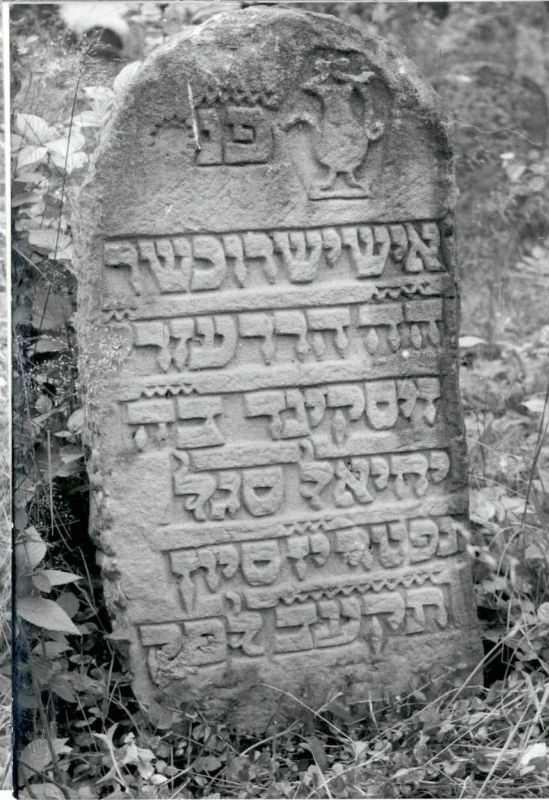 פנ
איש ישר וכשר
הרר
זיסקינד בה
יחיאל סגל
נפטר יז סיון
תקעב לפק